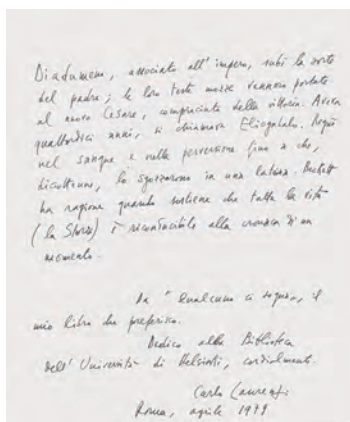 Diadumeno, associato all'impero, subì la sorte
del padre; le loro teste mozze vennero portate
al nuovo Cesare, compiaciuto della vittoria. Aveva
quattordici anni, si chiamava Eliogabalo. Regnò
nel sangue e nella perversione fino a che,
diciottenne, lo sgozzarono in una latrina. Beckett
ha ragione quando sostiene che tutta la vita
(la Storia) è riconducibile alla cronaca di un
momento.
Da "Qualcuno ci sogna, il
mio libro che preferisco.
Dedico alla Biblioteca
dell'Università di Helsinki, cordialmente.
Carlo Laurenzi
Roma, aprile 1979